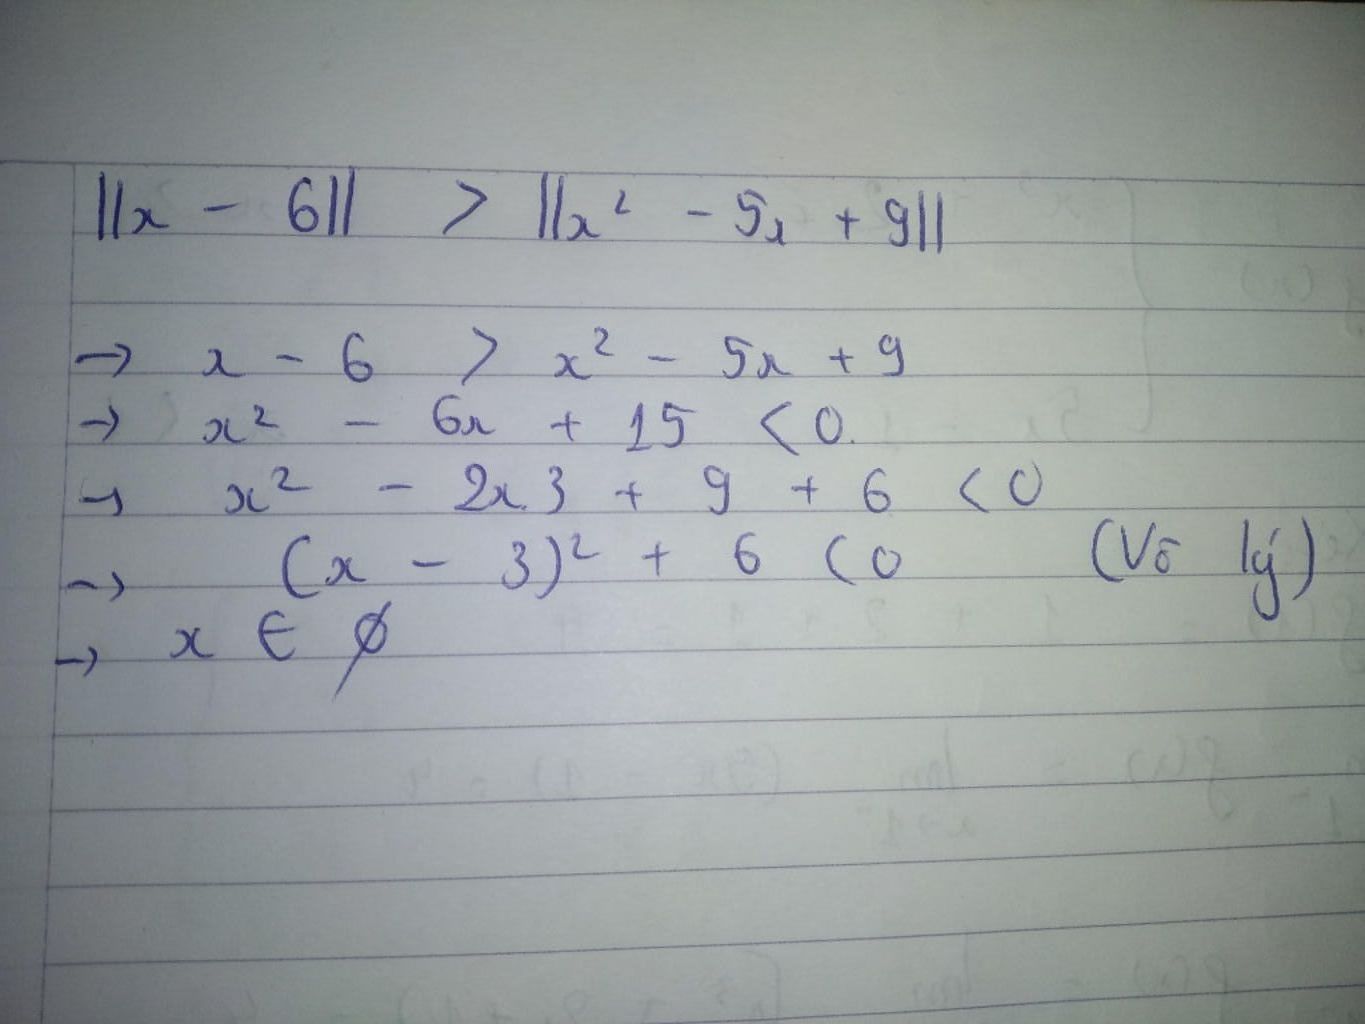 ||x - 6|| > ||x² - 5x + 9||
→ x - 6 > x² - 5x + 9
→ x² - 6x + 15 < 0.
→ x² - 2x.3 + 9 + 6 < 0
→ (x - 3)² + 6 < 0 (Vô lý)
→ x ∈ ∅